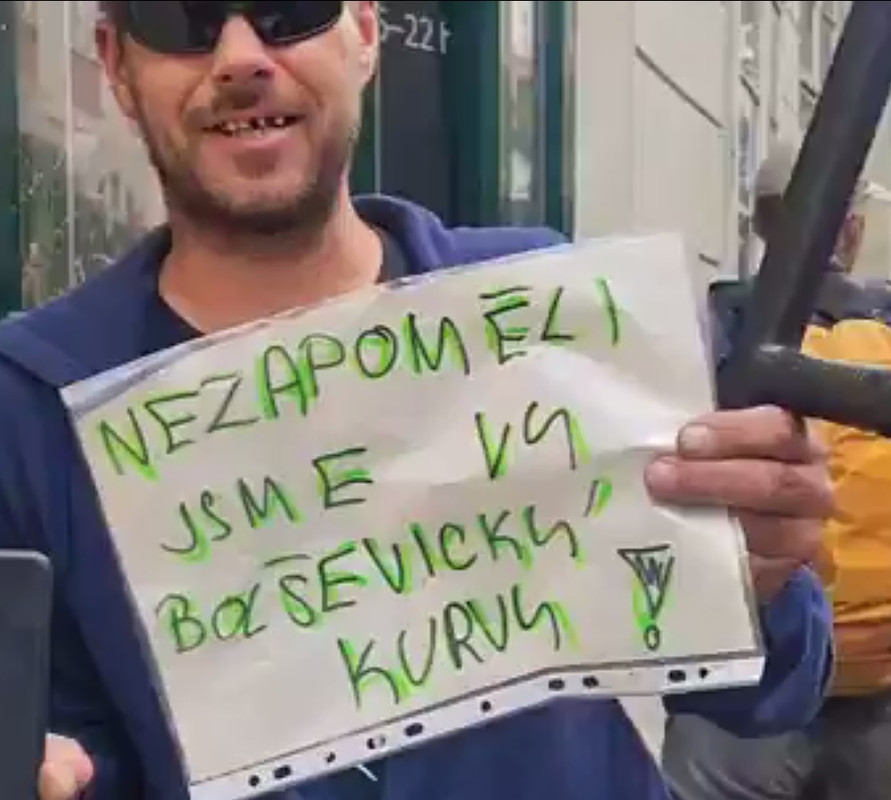 5-22 h
NEZAPOMĚLI
JSME VY
BOLŠEVICKÝ
KURVY!